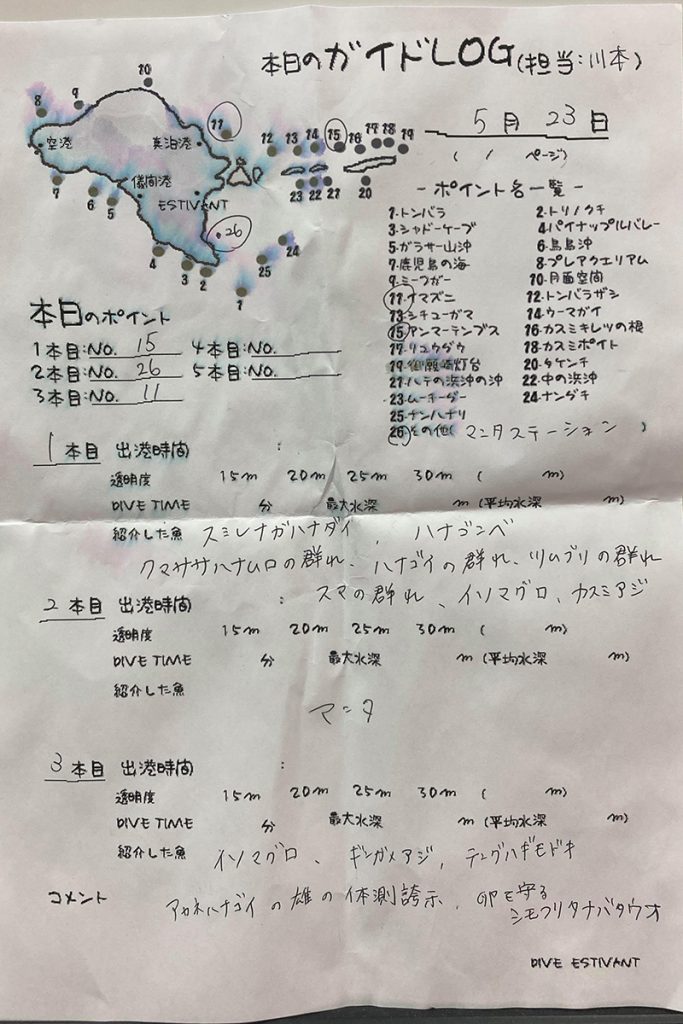 本日のガイドLOG(担当:川本)
5月23日
( / ページ)
10
8
9
11
空港
真泊港
12 13 14 15 16 17 18 19
7
儀間港
23 22 21
20
6
5
ESTIVANT
26
4
3
2
1
25
24
-ポイント名一覧-
1.トンバラ 2.トリノクチ
3.シャドーケーブ 4.パイナップルバレー
5.ガラサー山沖 6.鳥島沖
7.鹿児島の海 8.プレアクエリアム
9.ミーフガー 10.月面空間
11.ナマズニ 12.トンバラザシ
13.シチューガマ 14.ウーマガイ
15.アンマーテンプス 16.カスミキレツの根
17.リュウダウ 18.カスミポイント
19.御願崎灯台 20.タケンチ
21.ハテの浜沖の沖 22.中の浜沖
23.ムーチーダー 24.ナンダチ
25.ナンハナリ
26.その他(マンタステーション)
本日のポイント
1本目:NO. 15 4本目:NO.
2本目:NO. 26 5本目:NO.
3本目:NO. 11
1本目 出港時間 :
透明度 15m 20m 25m 30m ( m)
DIVE TIME 分 最大水深 m (平均水深 m)
紹介した魚 スミレナガハナダイ、ハナゴンベ
クマササハナムロの群れ、ハナゴイの群れ、ツムブリの群れ
スマの群れ、イソマグロ、カスミアジ
2本目 出港時間 :
透明度 15m 20m 25m 30m ( m)
DIVE TIME 分 最大水深 m (平均水深 m)
紹介した魚
マンタ
3本目 出港時間 :
透明度 15m 20m 25m 30m ( m)
DIVE TIME 分 最大水深 m (平均水深 m)
紹介した魚 イソマグロ、ギンガメアジ、テングハギモドキ
コメント アカネハナゴイの雄の体測誇示、卵を守る
シモフリタナバタウオ
DIVE ESTIVANT